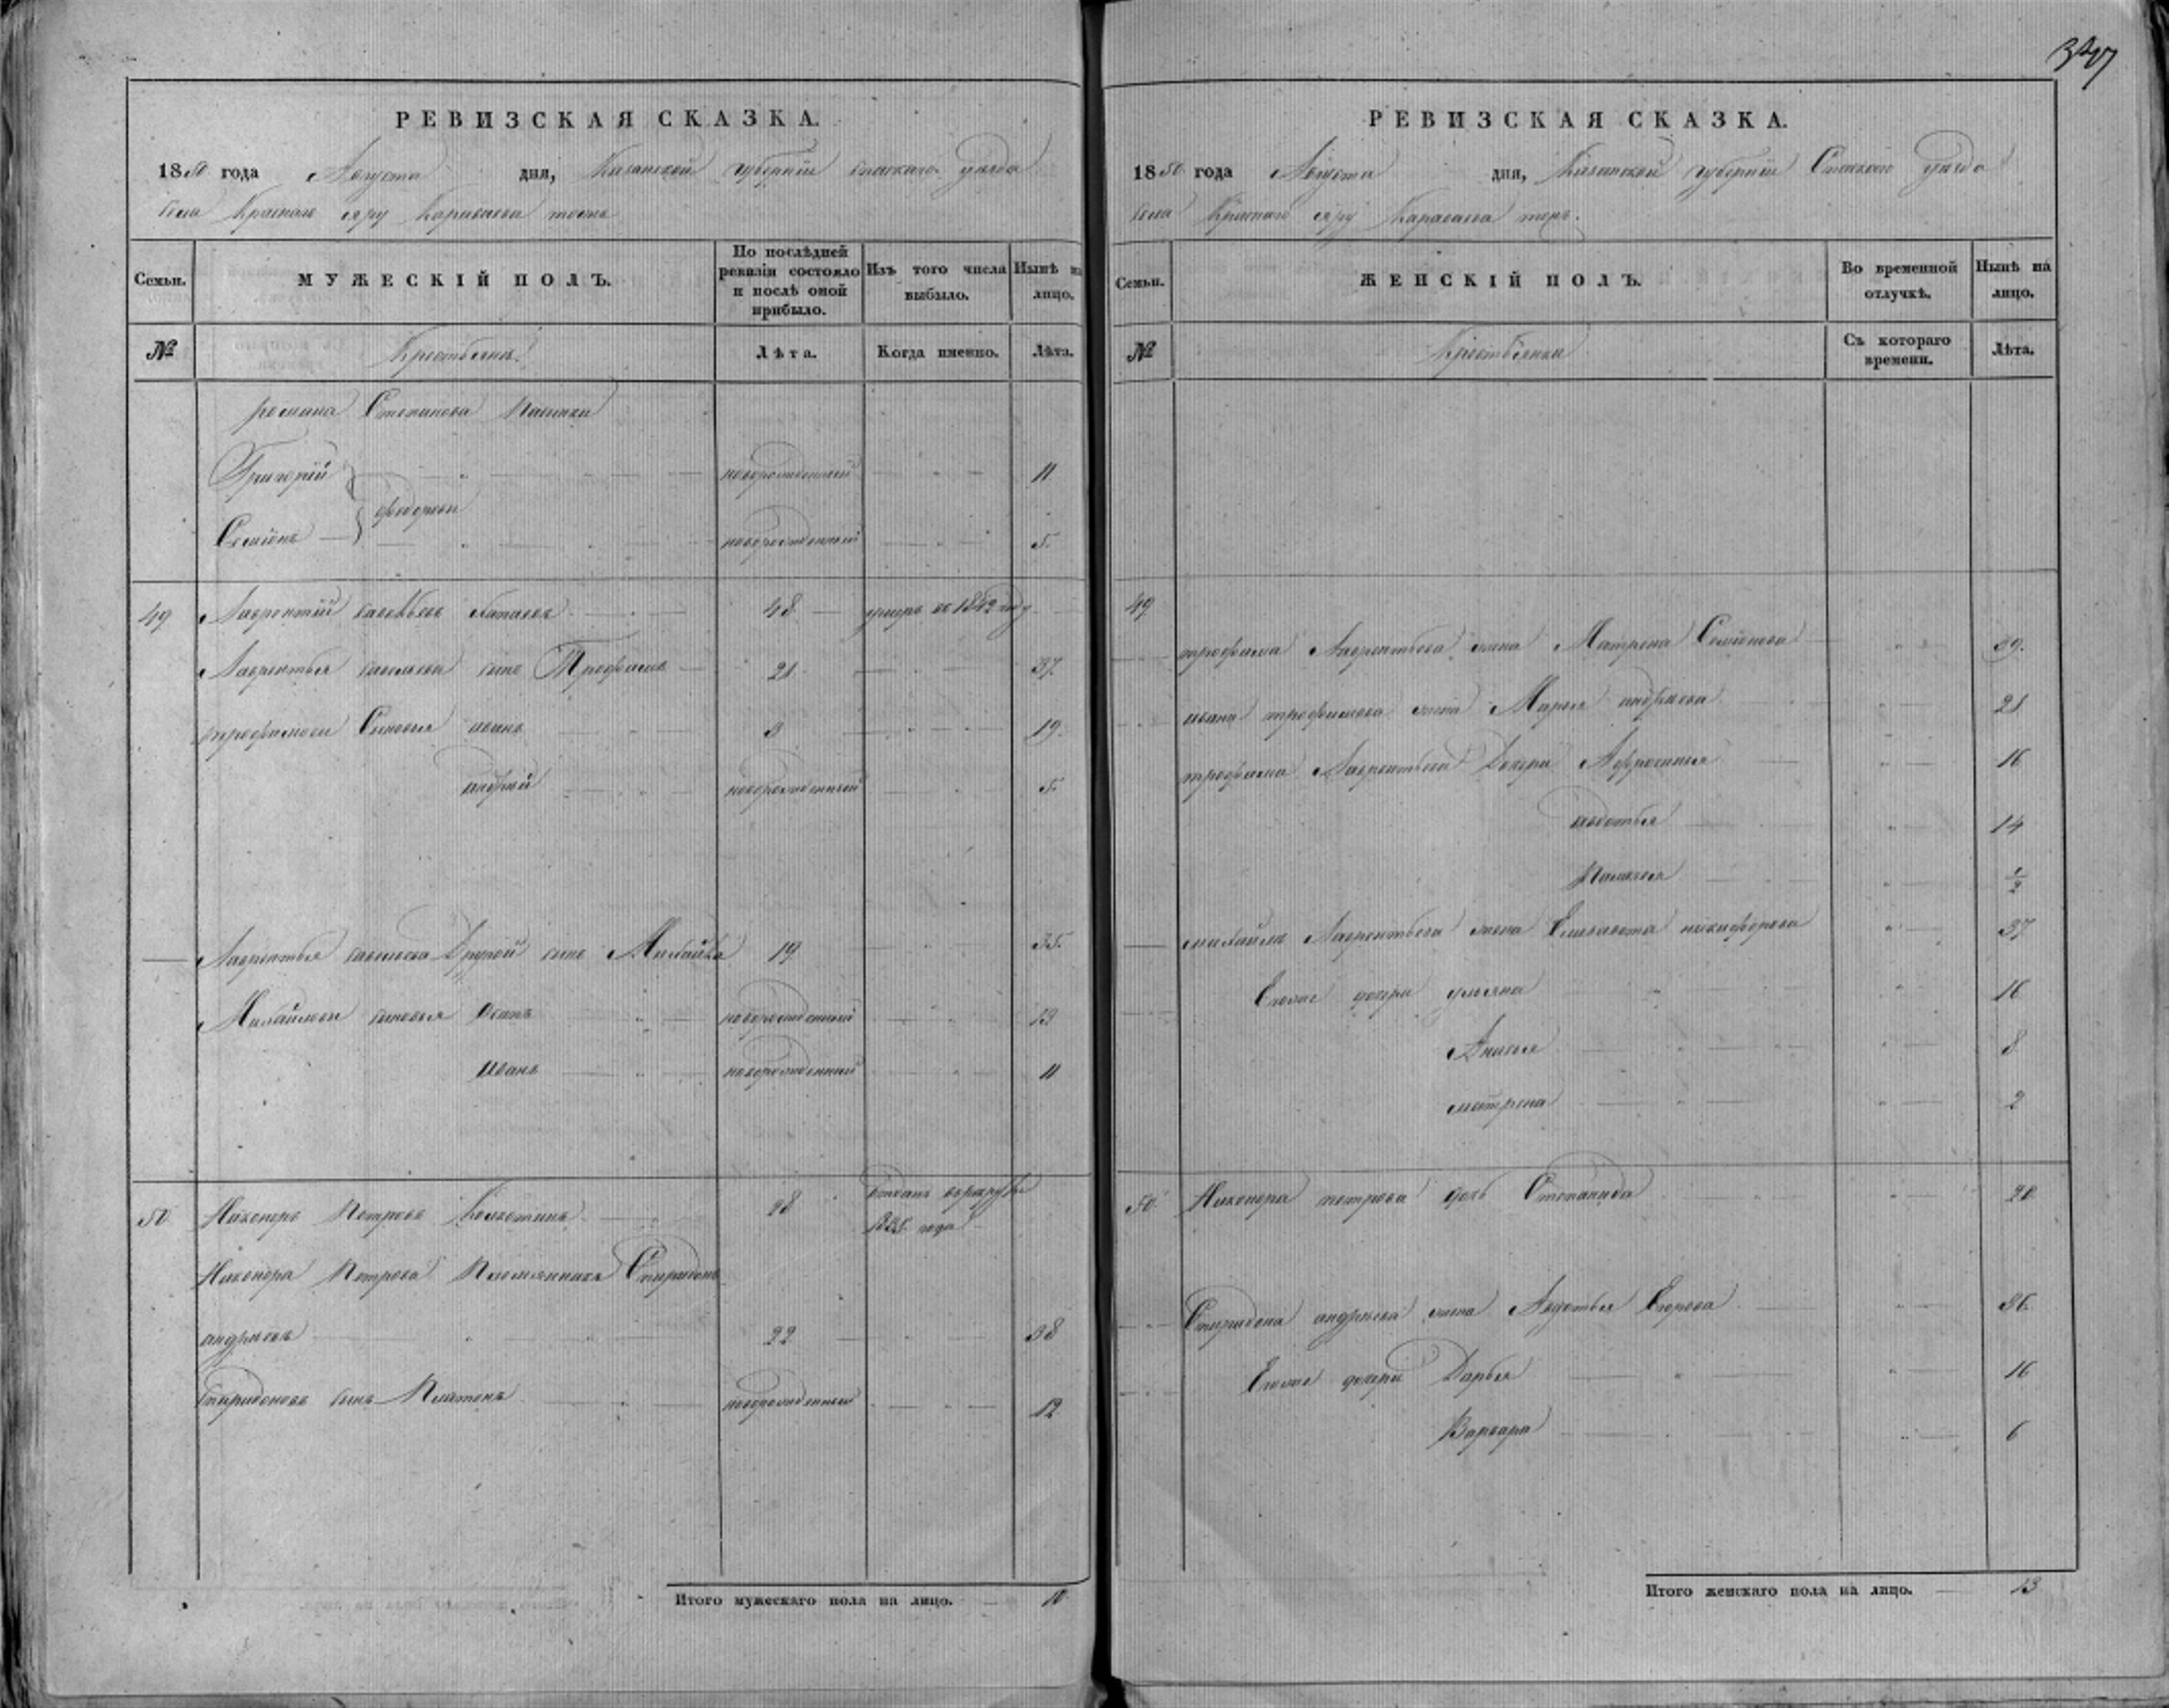 РЕВИЗСКАЯ СКАЗКА.
1850 года Августа дня, Казанской губерніи Спаскаго уѣзда
села Краснаго яру Караваева тожъ
Семьи. МУЖЕСКІЙ ПОЛЪ. По послѣдней ревизіи состояло и послѣ оной прибыло. Изъ того числа выбыло. Нынѣ на лицо.
№ Крестьяне. Лѣта. Когда именно. Лѣта.
романа Степанова
Григорій новорожденный 11
федоровы
Семіонъ новорожденный 5
49 Лаврентій савельевъ 48 умеръ въ 1842 году
Лаврентья савельева сынъ Трофимъ 21 37
трофимовы Сыновья иванъ 3 19
андрей новорожденный 5
Лаврентья савельева Другой сынъ Михайла 19 35
Михайловы сыновья Осипъ новорожденный 13
Иванъ новорожденный 11
50 Никоноръ Петровъ 28 отданъ врекруты
1835 года
Никонора Петрова Племянникъ Спиридонъ
андреевъ 22 38
спиридоновъ сынъ Платонъ новорожденный 12
Итого мужескаго пола на лицо. 10
РЕВИЗСКАЯ СКАЗКА.
1850 года Августа дня, Казанской губерніи Спаскаго уѣзда
села Краснаго яру Караваева тожъ.
Семьи. ЖЕНСКІЙ ПОЛЪ. Во временной отлучкѣ. Нынѣ на лицо.
№ Крестьянки Съ котораго времени. Лѣта.
49
трофима Лаврентьева жена Матрена Семіонова 39.
ивана трофимова жена Марья андреева 21
трофима Лаврентьева Дочери Афросинья 16
авдотья 14
Палагея 1/2
михайлы Лаврентьева жена Елизавета никифорова 37
Егоже дочери ульяна 16
Анисья 8
матрена 2
50. Никонора петрова дочь Степанида 20
Спиридона андреева жена Авдотья Егорова 36.
Егоже дочери Дарья 16
Варвара 6
Итого женскаго пола на лицо. 13